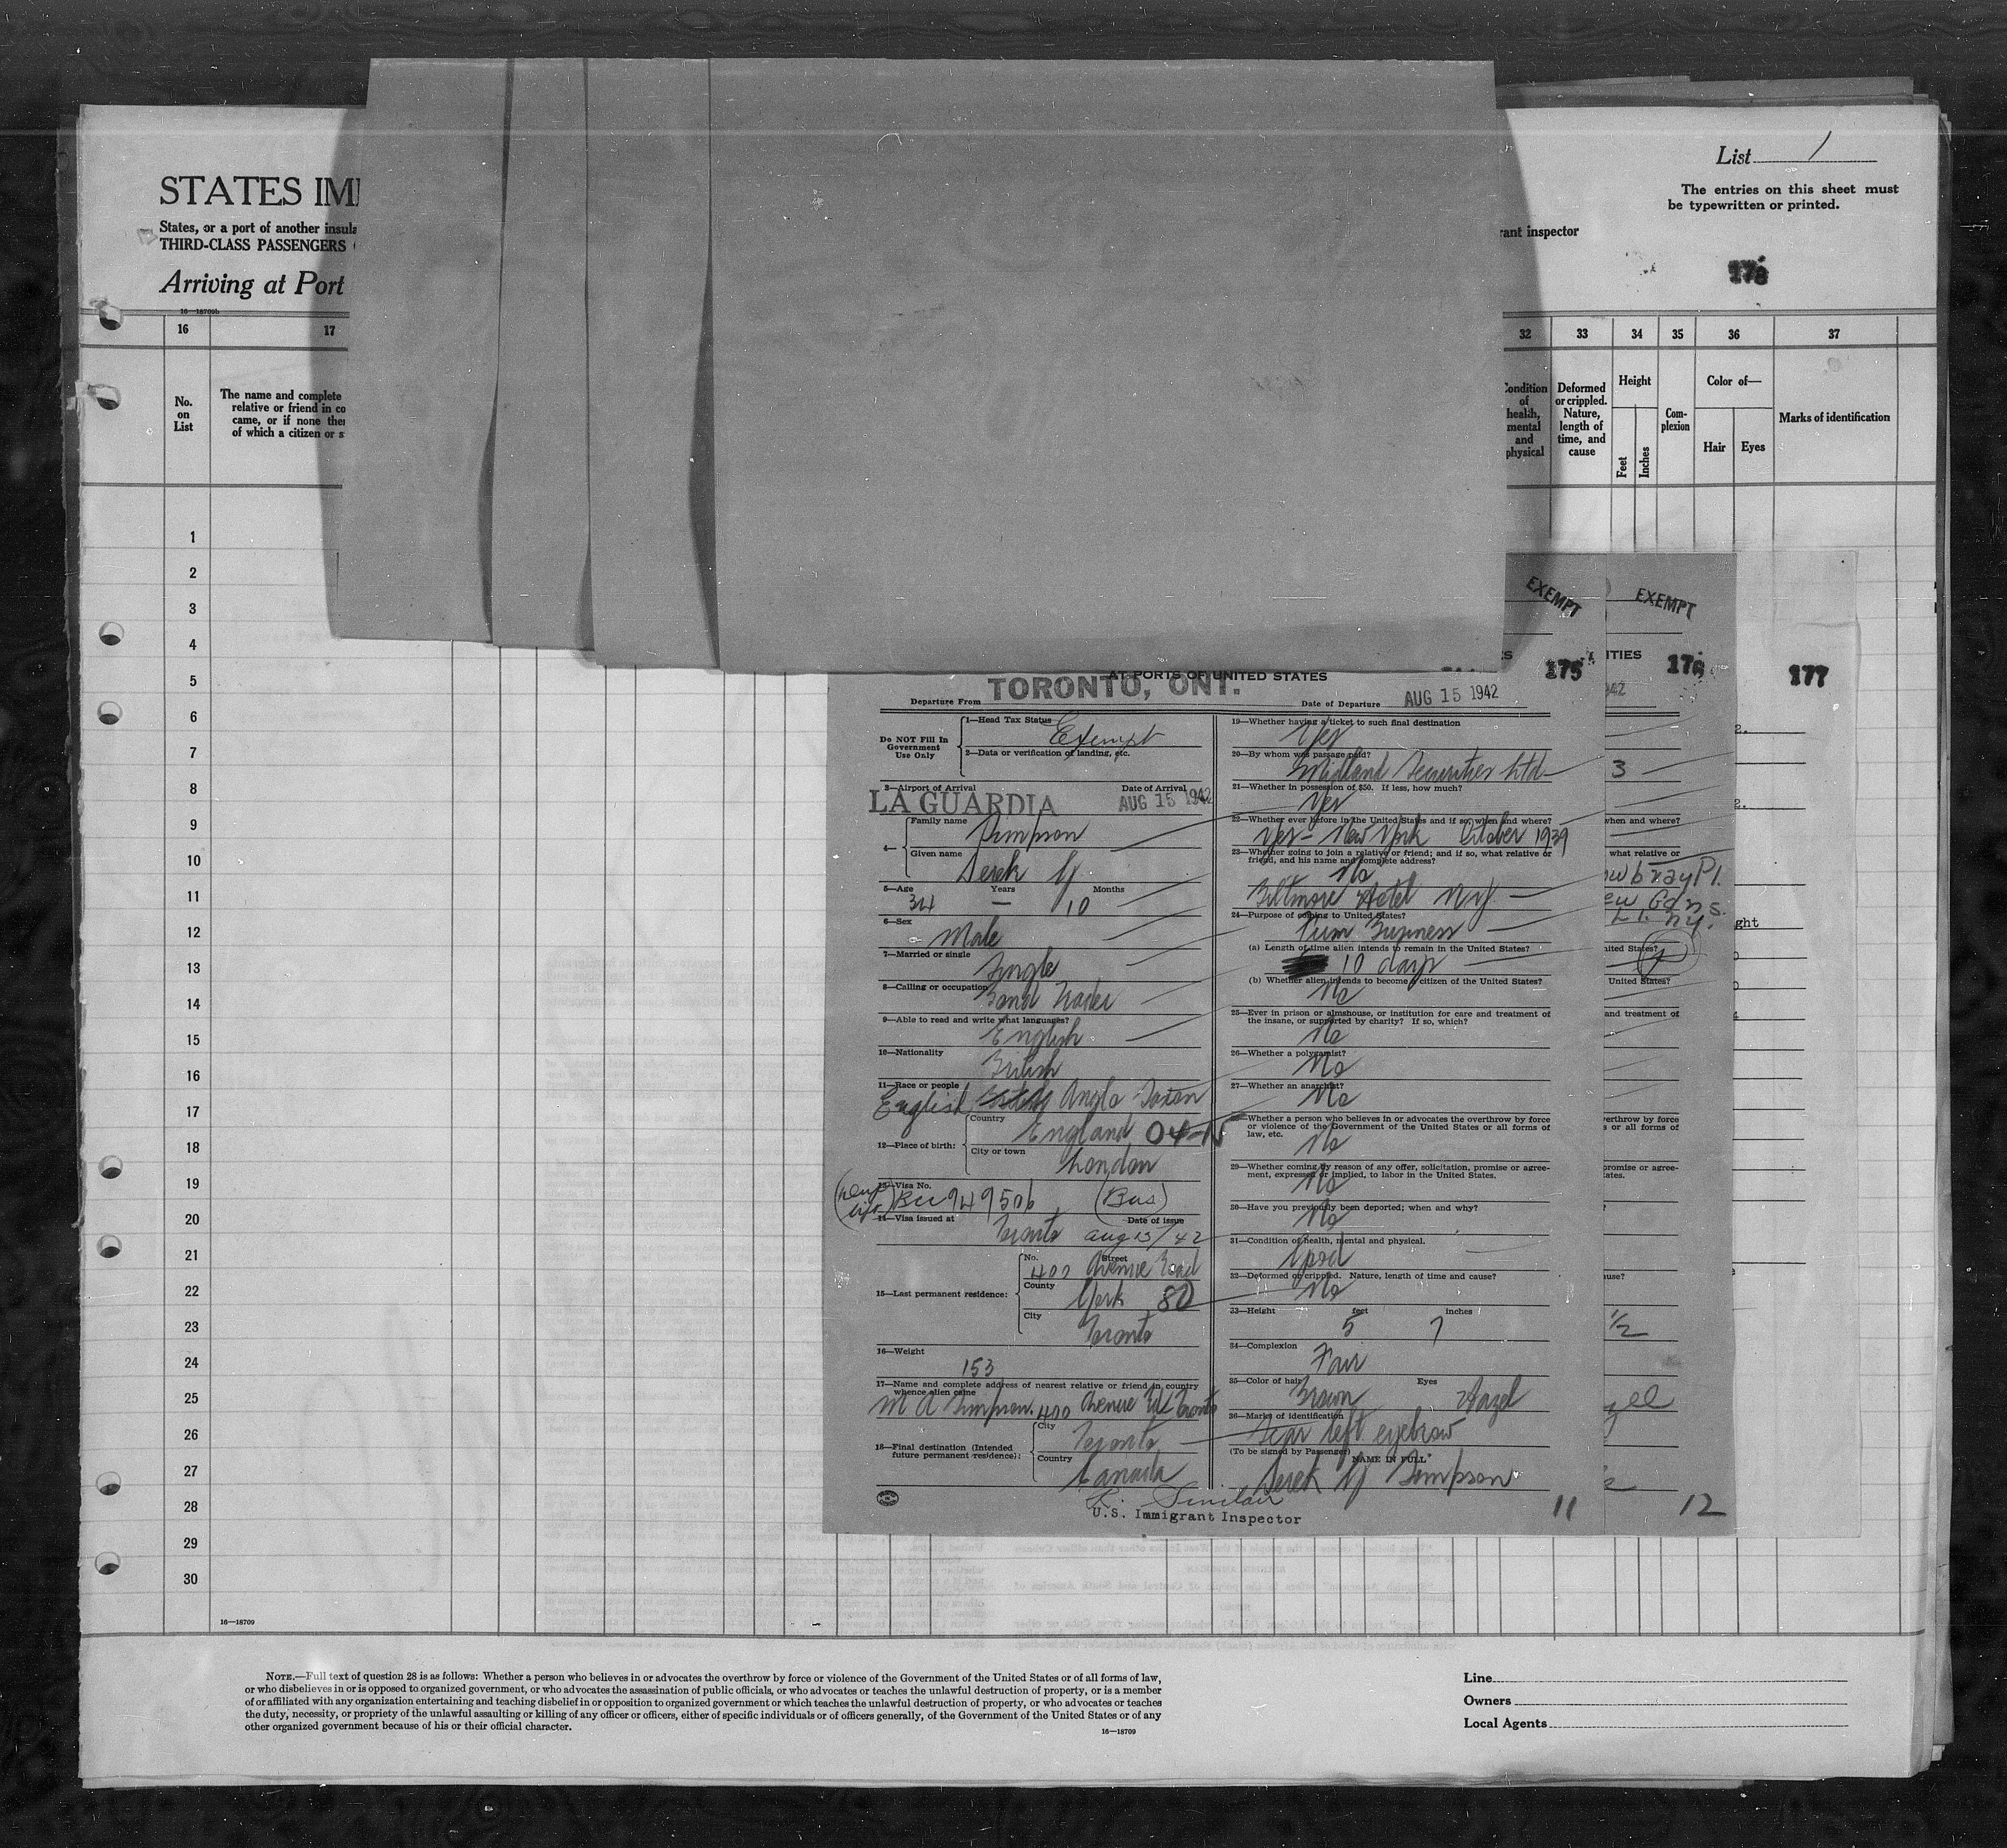 List 1
The entries on this sheet must
be typewritten or printed.
STATES IM
States, or a port of another insula
THIRD-CLASS PASSENGERS
Arriving at Port
rant inspector
178
16—18709b
16 17 32 33 34 35 36 37
No.
on
List
The name and complete
relative or friend in co
came, or if none ther
of which a citizen or s
Condition
of
health,
mental
and
physical
Deformed
or crippled.
Nature,
length of
time, and
cause
Height
Feet
Inches
Com-
plexion
Color of—
Hair
Eyes
Marks of identification
1
2
3
4
5
6
7
8
9
10
11
12
13
14
15
16
17
18
19
20
21
22
23
24
25
26
27
28
29
30
16—18709
EXEMPT
175
AT PORTS OF UNITED STATES
TORONTO, ONT.
Departure From
Date of Departure AUG 15 1942
Do NOT Fill In
Government
Use Only
1—Head Tax Status
Exempt
2—Data or verification of landing, etc.
3—Airport of Arrival Date of Arrival
LA GUARDIA AUG 15 1942
4—
Family name Simpson
Given name Derek
5—Age Years Months
34 — 10
6—Sex
Male
7—Married or single
Single
8—Calling or occupation
Bond Trader
9—Able to read and write what languages?
English
10—Nationality
British
11—Race or people
English Anglo Saxon
12—Place of birth:
Country
England 04-15
City or town
London
13—Visa No.
949506 (Bus)
14—Visa issued at Date of issue
Toronto Aug 15/42
15—Last permanent residence:
No. Street
400 Avenue Road
County
York 80
City
Toronto
16—Weight
153
17—Name and complete address of nearest relative or friend in country
whence alien came
M A Simpson. 400 Avenue Rd Toronto
18—Final destination (Intended
future permanent residence):
City
Toronto
Country
Canada
Sinclair
U.S. Immigrant Inspector
19—Whether having a ticket to such final destination
Yes
20—By whom was passage paid?
Midland Securities Ltd
21—Whether in possession of $50. If less, how much?
Yes
22—Whether ever before in the United States and if so, when and where?
Yes - New York October 1939
23—Whether going to join a relative or friend; and if so, what relative or
friend, and his name and complete address?
No
Biltmore Hotel NY
24—Purpose of coming to United States?
Business
(a) Length of time alien intends to remain in the United States?
10 days
(b) Whether alien intends to become a citizen of the United States?
No
25—Ever in prison or almshouse, or institution for care and treatment of
the insane, or supported by charity? If so, which?
No
26—Whether a polygamist?
No
27—Whether an anarchist?
No
28—Whether a person who believes in or advocates the overthrow by force
or violence of the Government of the United States or all forms of
law, etc.
No
29—Whether coming by reason of any offer, solicitation, promise or agree-
ment, expressed or implied, to labor in the United States.
No
30—Have you previously been deported; when and why?
No
31—Condition of health, mental and physical.
Good
32—Deformed or crippled. Nature, length of time and cause?
No
33—Height feet inches
5 7
34—Complexion
Fair
35—Color of hair Eyes
Brown Hazel
36—Marks of identification
Scar left eyebrow
(To be signed by Passenger)
NAME IN FULL
Derek Simpson
11
EXEMPT
ITIES 176
942
3
when and where?
what relative or
wbray Pl.
ew Gdns.
L.I. NY.
nited States?
United States?
and treatment of
verthrow by force
s or all forms of
promise or agree-
ates.
?
ause?
1/2
12
177
2.
2.
ght
NOTE.—Full text of question 28 is as follows: Whether a person who believes in or advocates the overthrow by force or violence of the Government of the United States or of all forms of law,
or who disbelieves in or is opposed to organized government, or who advocates the assassination of public officials, or who advocates or teaches the unlawful destruction of property, or is a member
of or affiliated with any organization entertaining and teaching disbelief in or opposition to organized government or which teaches the unlawful destruction of property, or who advocates or teaches
the duty, necessity, or propriety of the unlawful assaulting or killing of any officer or officers, either of specific individuals or of officers generally, of the Government of the United States or of any
other organized government because of his or their official character.
16—18709
Line
Owners
Local Agents